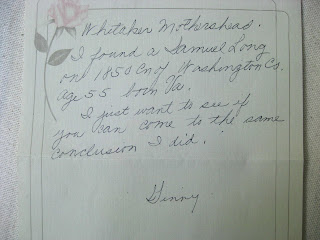 Whitaker Mothershead.
I found a Samuel Long
on 1850 Cn of Washington Co.
age 55 born Va.
I just want to see if
you can come to the same
conclusion I did.